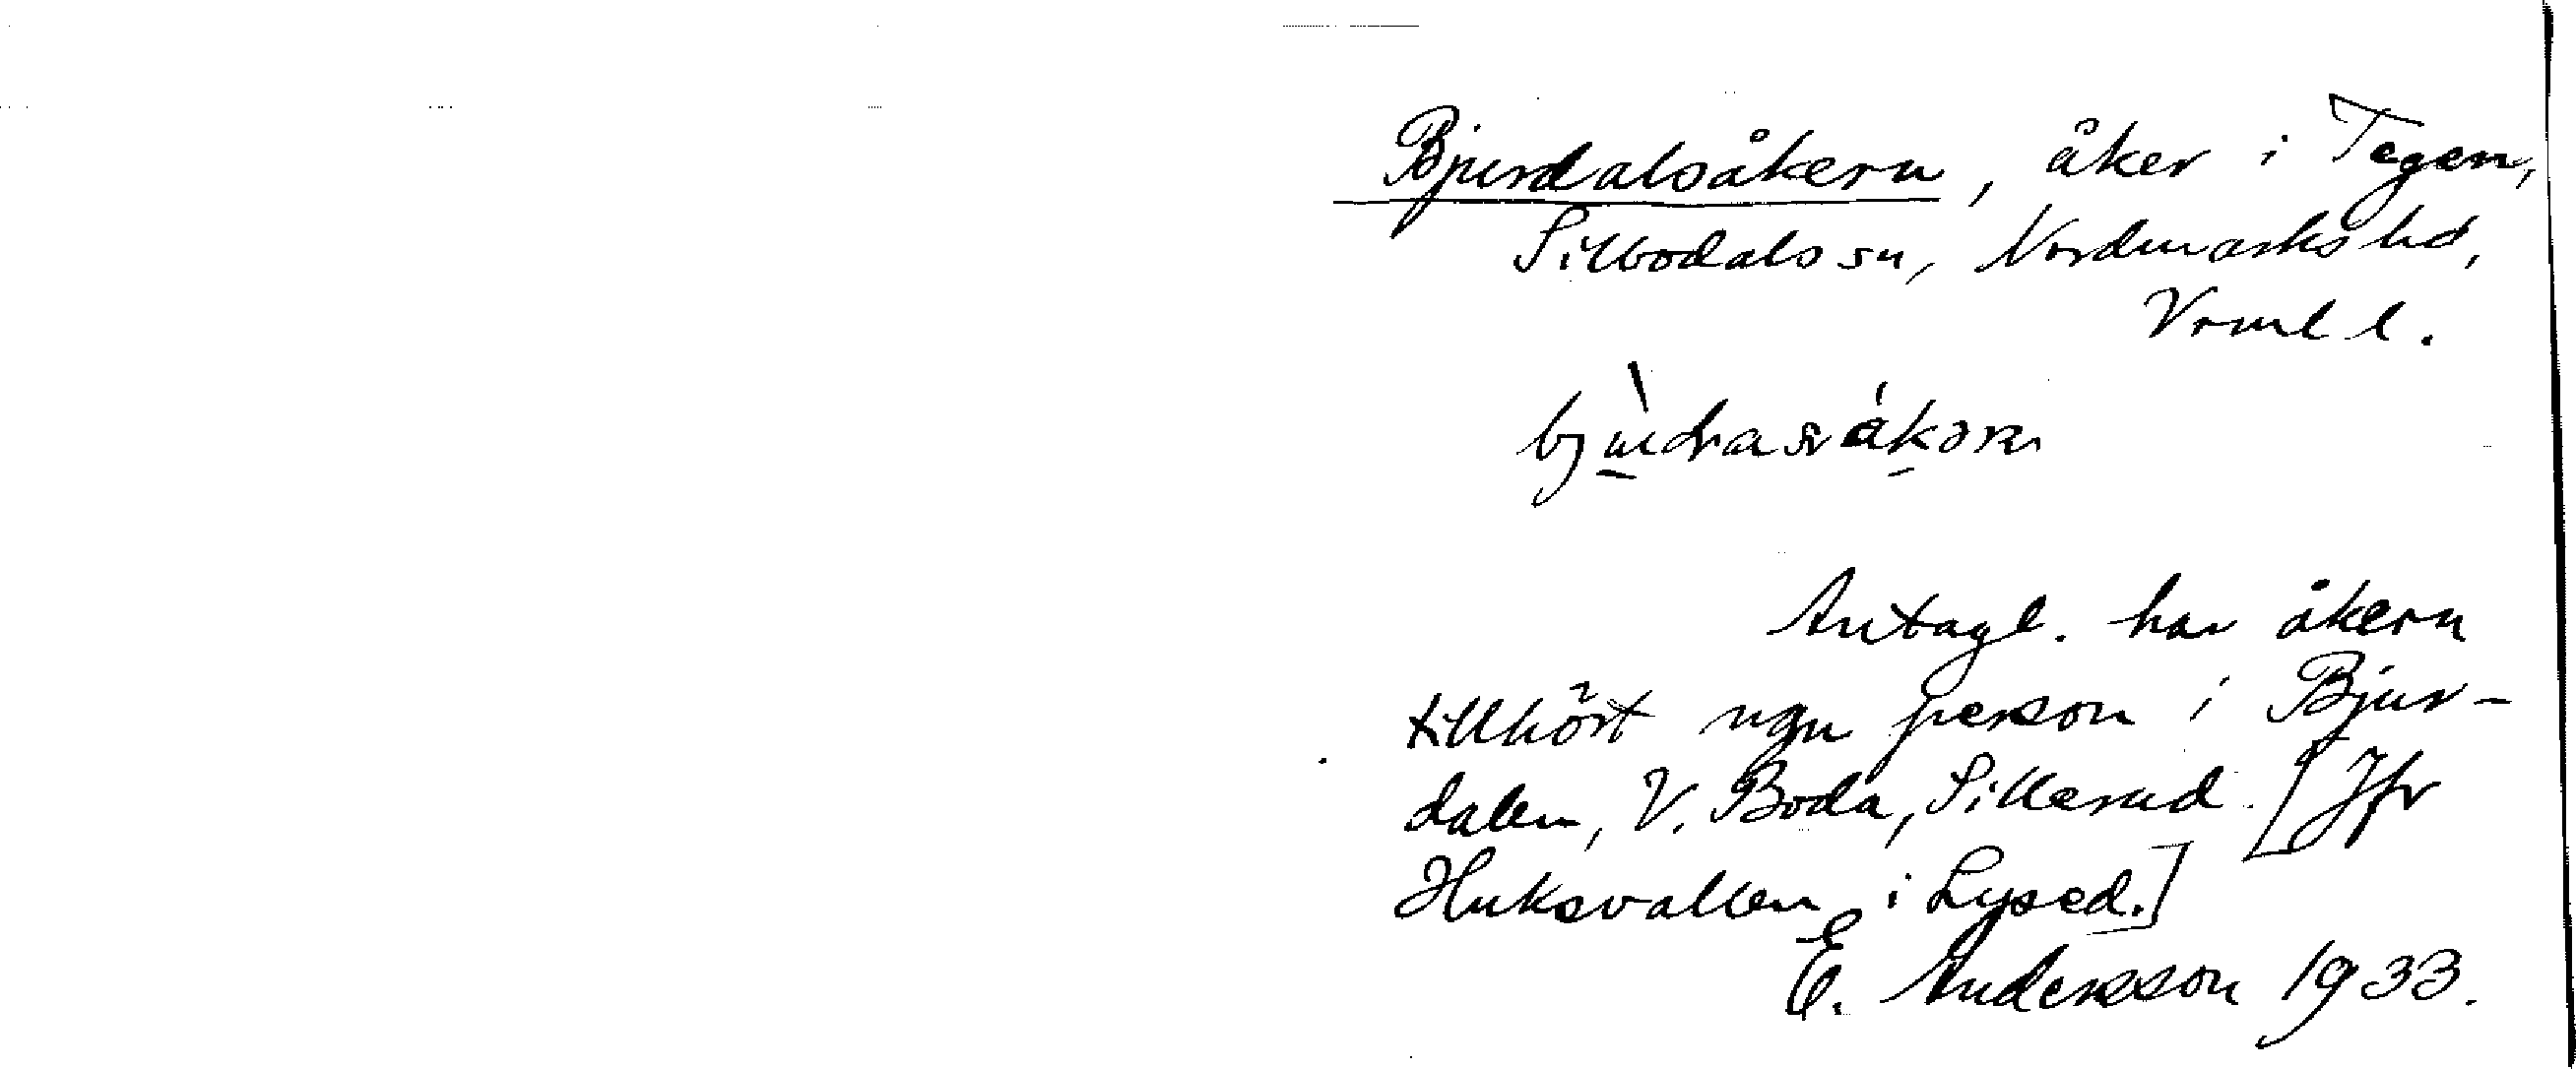 Bjurdalsåkern, åker i Tegen,
Sillbodals sn, Nordmarks hd,
Vrml l.
Antagl. har åkern
tillhört ngn person i Bjur-
dalen, V. Boda, Sillerud. [Jfr
Huksvallen i Lysed.]
E. Andersson 1933.